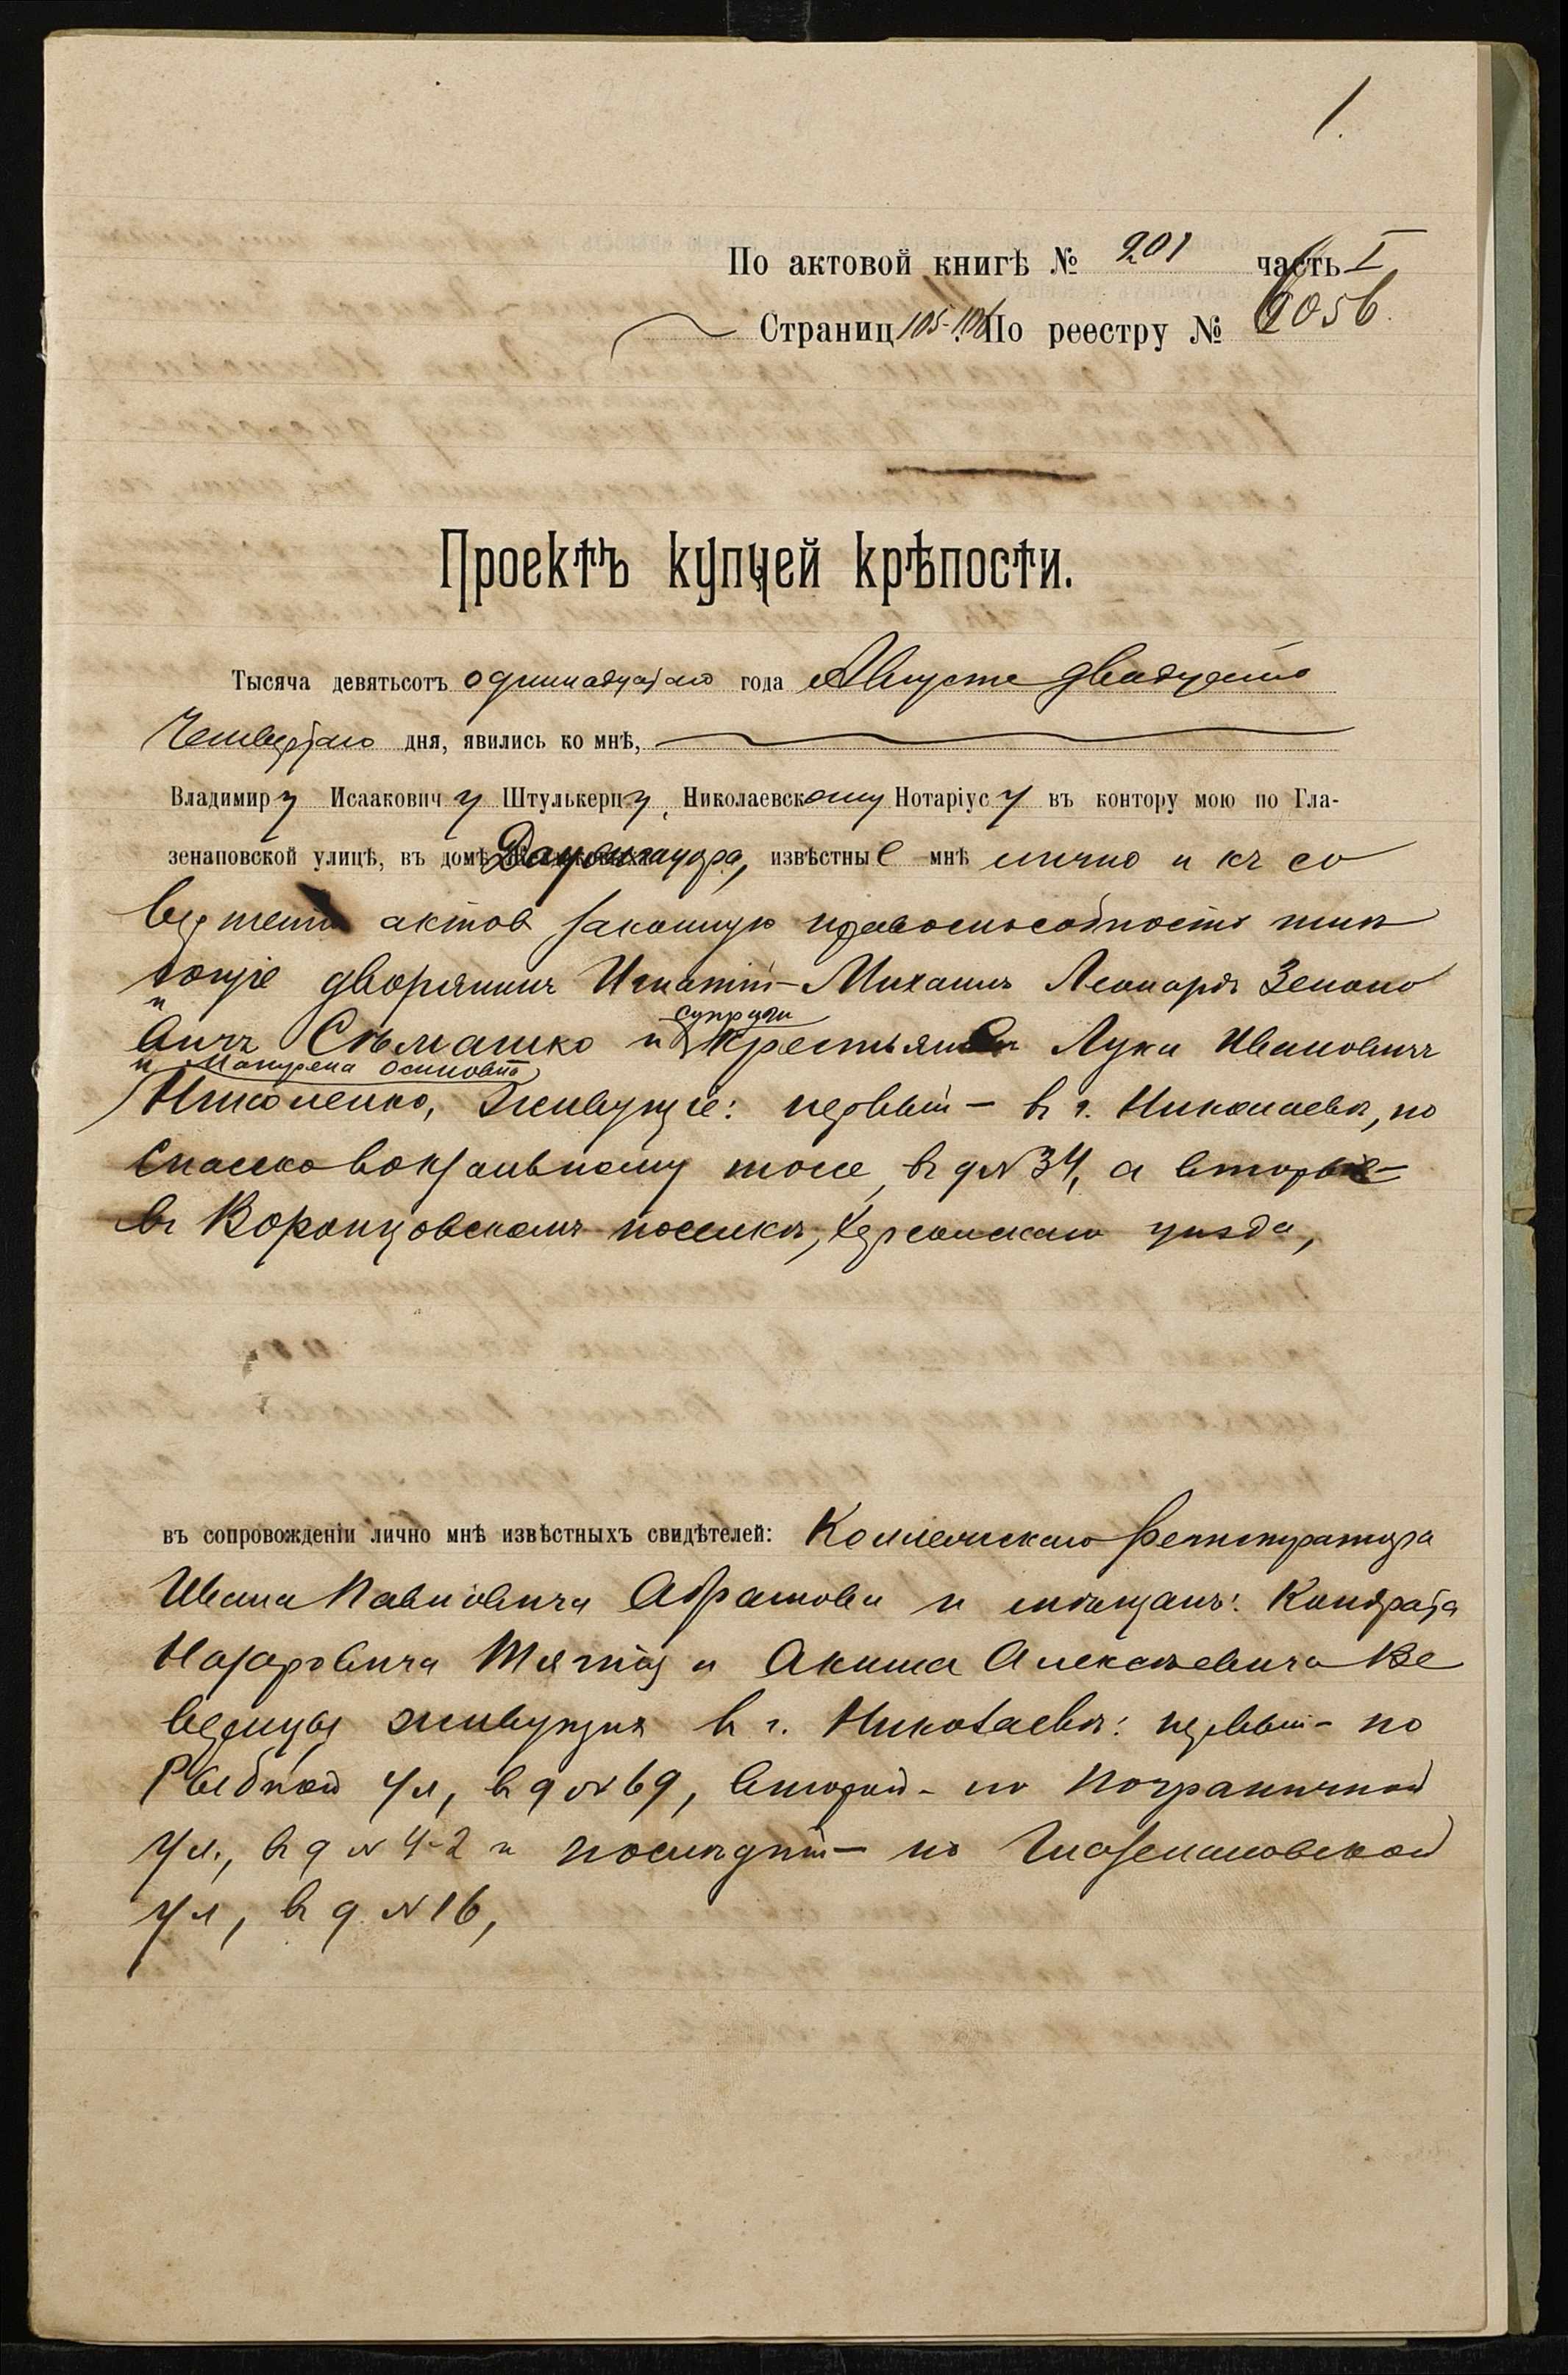 1.
По актовой книгѣ № 201 часть I
Страниц 105-106. По реестру № 6056.
Проектъ купчей крѣпости.
Тысяча девятьсотъ одиннадцатаго года Августа двадцать
Четвертаго дня, явились ко мнѣ,
Владимиру Исаакович у Штулькерцу, Николаевскому Нотаріусу въ контору мою по Гла-
зенаповской улицѣ, въ домѣ извѣстные мнѣ лично и къ со
вершенію актов законную правоспособность имѣ
ющіе дворянинъ Игнатій-Михаилъ Леонардъ Зенонo
супруги
вичъ Сѣмашко и крестьяне Лука Ивановичъ
и Осиповна
Николенко, живущіе: первый - въ г. Николаевѣ, по
Спасско вокзальному шоссе, въ д № 34, а вторые -
въ Воронцовскомъ поселкѣ, Херсонскаго уѣзда,
въ сопровожденіи лично мнѣ извѣстныхъ свидѣтелей: Коллежскаго Регистратора
Ивана Павловича Абрамова и мѣщанъ: Кондрата
Назаровича и Акима Алексѣевича Ве
верицы живущихъ въ г. Николаевѣ: первый - по
Рыбной ул, въ д № 69, второй - по Пограничной
ул., въ д № 42 и послѣдній - по Глазенаповской
ул, въ д № 16,